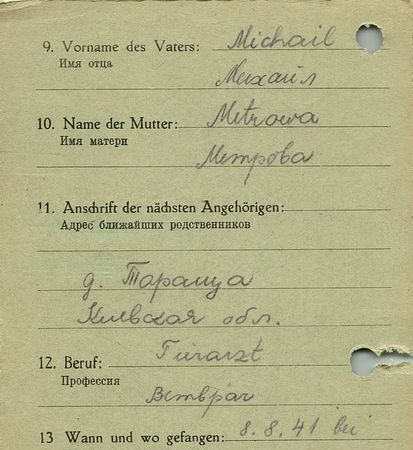 9. Vorname des Vaters: Michail
Имя отца
Михаил
10. Name der Mutter: Metrowa
Имя матери
Метрова
11. Anschrift der nächsten Angehörigen:
Адрес ближайших родственников
д. Тараща
Киевская обл.
12. Beruf: Tierarzt
Профессия
Ветврач
13 Wann und wo gefangen: 8. 8. 41 bei